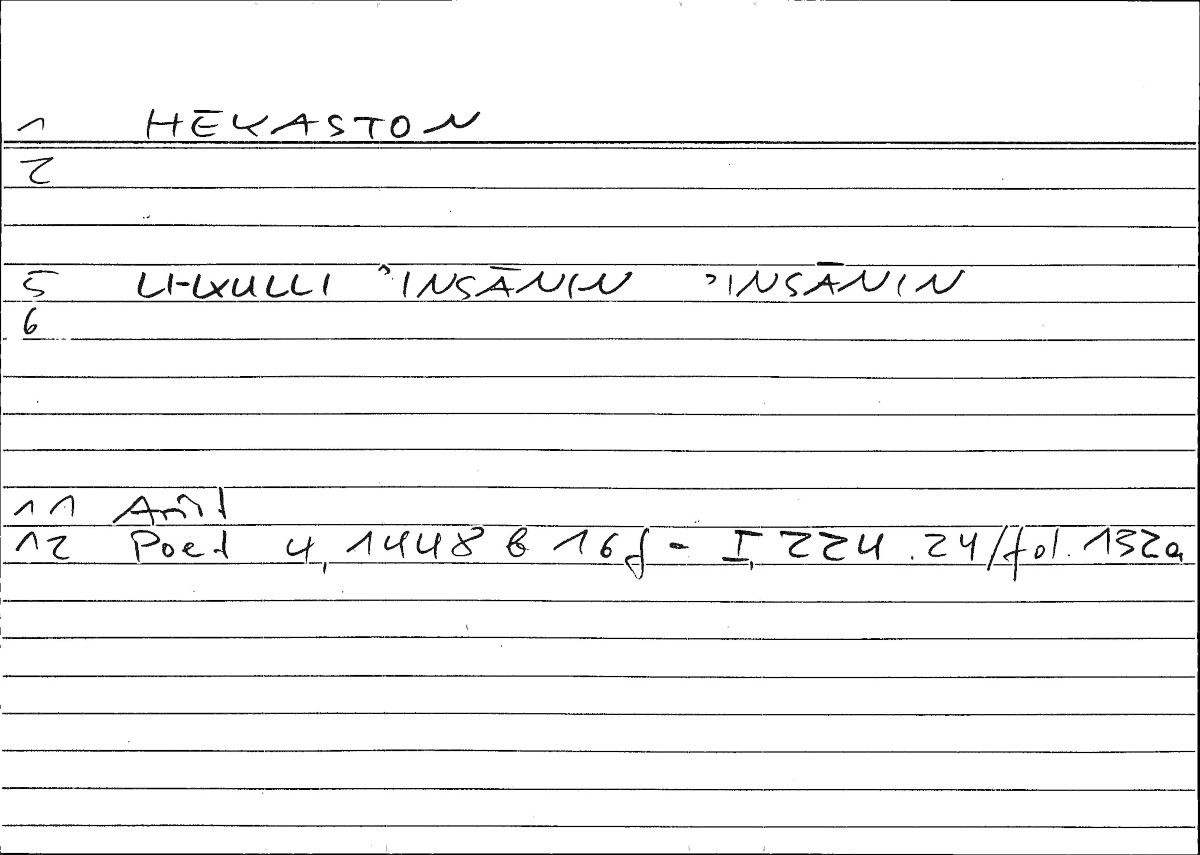 1 HĒKASTON
2
5 LI-KULLI ʾINSĀNIN ʾINSĀNIN
6
11 Arist
12 Poet 4, 1448 b 16f = I, 224.24/fol. 132a